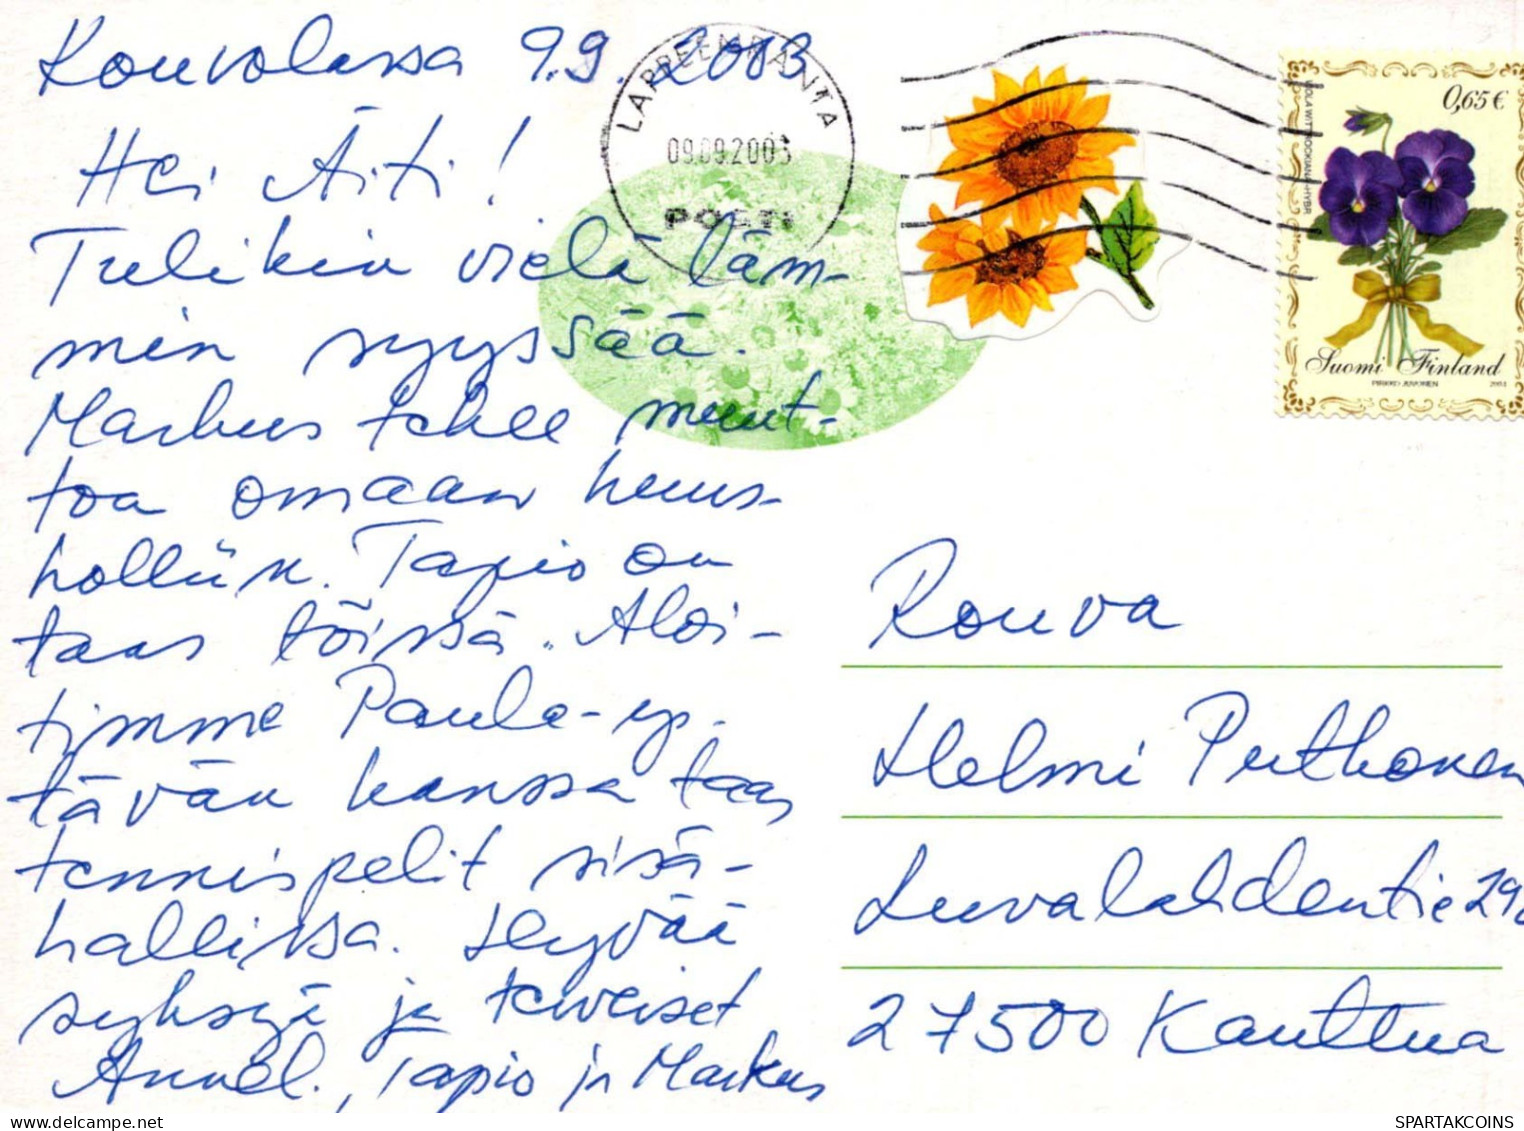 Kouvolassa 9.9. 2003
Hei Äiti!
Tulikin vielä läm-
min syyssää.
Markus tekee muut-
toa omaan huus-
holliin. Tapio on
taas töissä. Aloi-
timme Paula-ys-
tävän kanssa taas
tennispelit sisä-
hallissa. Hyvää
syksyä ja terveiset
Anneli, Tapio ja Markus
LAPPEENRANTA
09.09.2003
POSTI
0,65€
VIOLA WITTROCKIANA-HYBR
Suomi Finland
PIRKKO JUVONEN
Rouva
Helmi Puthonen
Luvalahdentie
27500 Kauttua
SPARTAKCOINS